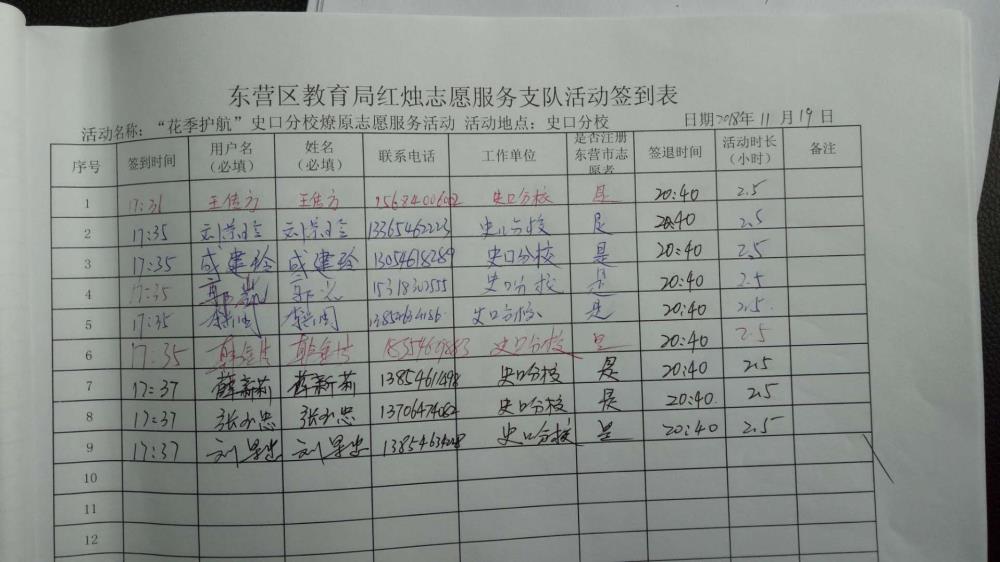 东营区教育局红烛志愿服务支队活动签到表
活动名称：“花季护航”史口分校燎原志愿服务活动 活动地点：史口分校 日期2018年11月19日
序号 签到时间 用户名（必填） 姓名（必填） 联系电话 工作单位 是否注册东营市志愿者 签退时间 活动时长（小时） 备注
1 17:31 王佳方 王佳方 史口分校 是 20:40 2.5
2 17:35 13365462223 史口分校 是 20:40 2.5
3 17:35 成建玲 成建玲 13054618289 史口分校 是 20:40 2.5
4 17:35 15318302555 史口分校 是 20:40 2.5
5 17:35 史口分校 是 20:40 2.5
6 17:35 史口分校 是 20:40 2.5
7 17:37 薛新莉 薛新莉 13854611498 史口分校 是 20:40 2.5
8 17:37 张小忠 张小忠 13706474062 史口分校 是 20:40 2.5
9 17:37 刘景忠 刘景忠 史口分校 是 20:40 2.5
10
11
12